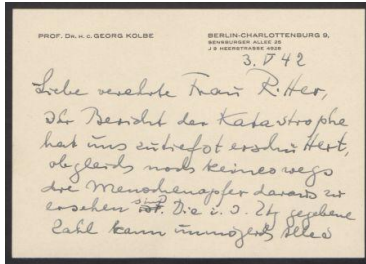 PROF. DR. H. C. GEORG KOLBE
BERLIN-CHARLOTTENBURG 9,
SENSBURGER ALLEE 25
J 9 HEERSTRASSE 4528
3. V 42
Liebe verehrte Frau Ritter,
Ihr Bericht der Katastrophe
hat uns zutiefst erschüttert,
obgleich noch keineswegs
die Menschenopfer daraus zu
ersehen sind. Die i. d. Ztg gegebene
Zahl kann unmöglich alles